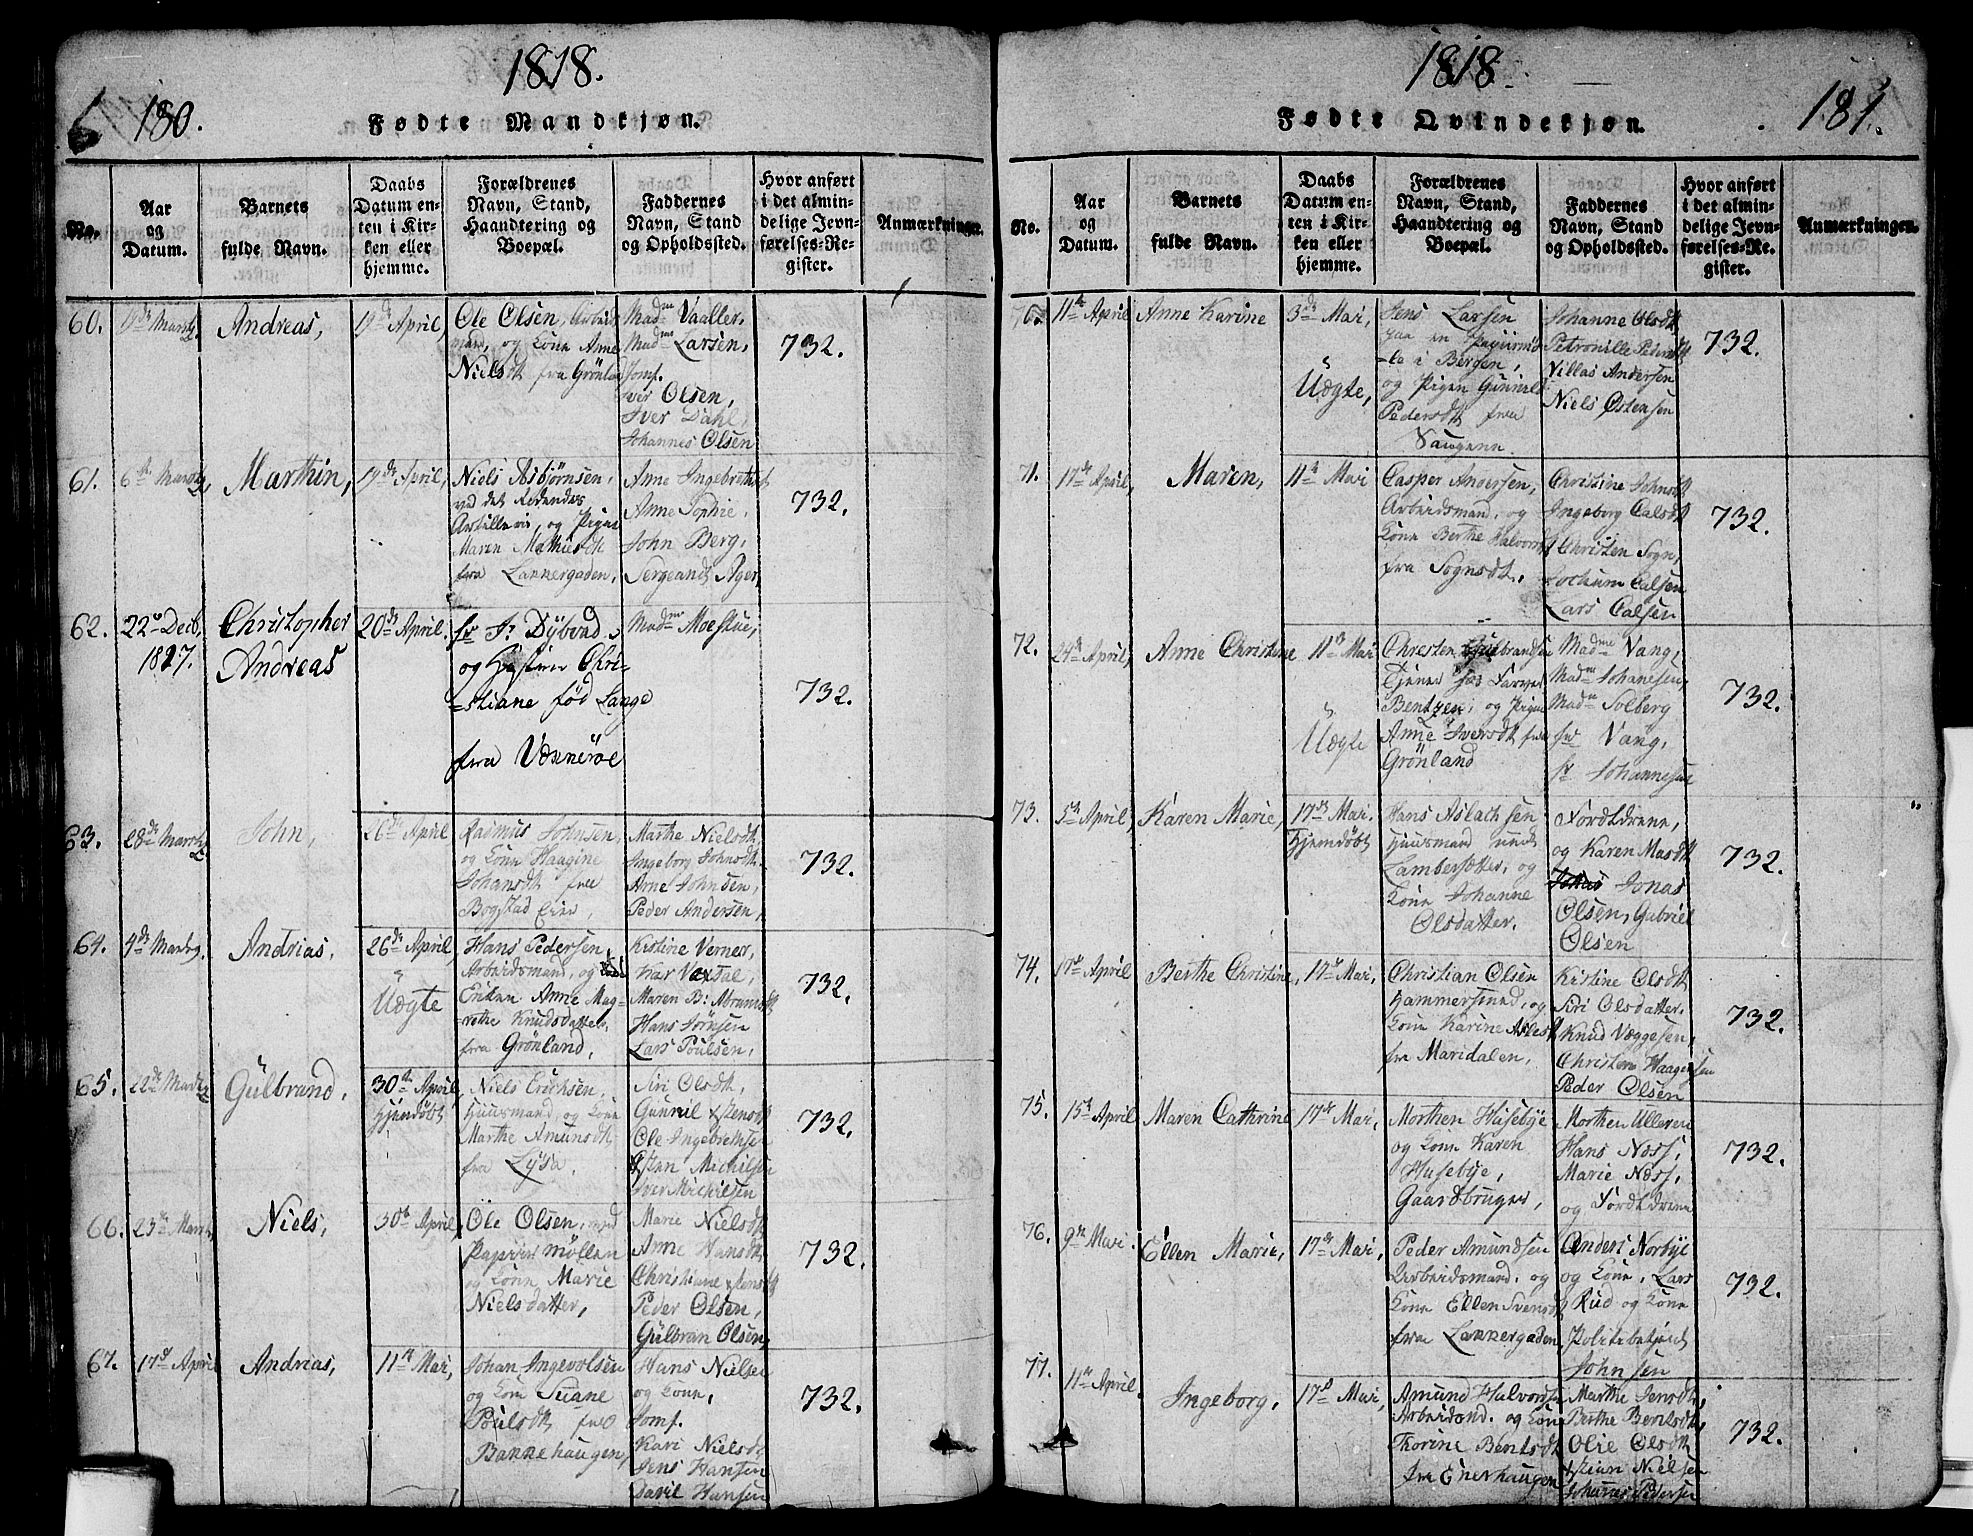 1818.
180.
Fødte Mandkjøn.
No.
Aar og Datum.
Barnets fulde Navn.
Daabs Datum enten i Kirken eller hjemme.
Forældrenes Navn, Stand, Haandtering og Boepæl.
Faddernes Navn, Stand og Opholdssted.
Hvor anført i det almindelige Jevnførelses-Register.
Anmærkninger.
60.
Andreas,
19de April,
Ole Olsen, Arbeids
mand, og Kone Anne
Nielsdt fra Grönland
Madme Vaaller,
Madme Larsen,
Jomf.
Olsen,
Iver Dahl,
Johannes Olsen
732.
61.
6te Marty,
Marthin,
19de April,
Niels Asbjørnsen,
ved det Ridendes
Artilleri, og Pigen
Maren Mathisdt
fra Lakkergaden,
Anne Ingebretsdt
Anne Sophie,
John Berg,
Sergeandt Ager,
732.
62.
22de Decb.
1817.
Christopher
Andreas
20de April.
Hr Jr Dybvad
og Hustrue Chri-
-stiane fød Lange
fra Vækkerøe
Madme Moestue,
732.
63.
28de Marty
John,
26de April
Rasmus Johnsen,
og Kone Haagine
Johansdt fra
Bogstad Eier,
Marthe Nielsdt,
Ingeborg Johnsdt.
Arne Johnsen,
Peder Andersen,
732.
64.
4de Marty.
Andrias,
26de April,
Uægte
Hans Pedersen,
Arbeidsmand, og
Enken Anne Mag-
-rethe Knudsdatter
fra Grönland,
Kistine Verner,
Ivar Vaxdal,
Maren B: Abramsdt
Hans Jörnsen
Lars Poulsen,
732.
65.
22de Marty
Gulbrand,
30te April,
Hjemdöbt
Niels Ericksen,
Huusmand, og Kone
Marthe Amunsdt
fra Lysa,
Siri Olsdt,
Gunnil Østensdt
Ole Ingebrethsen
Østen Michilsen
Iver Michilsen
732.
66.
23de Marty,
Niels,
30te April,
Ole Olsen, ved
Papiirmøllen
og Kone Marie
Nielsdatter,
Marie Nielsdt
Anne Hansdt
Christiane Østensdt
Peder Olsen,
Gülbran Olsen,
732.
67.
17de April
Andrias,
11te Mai,
Johan Ingevolsen
og Kone
Poulsdt fra
Bakkehaugen,
Hans Nielsen
og Kone,
Jomf.
Kari Nielsdt
Jens Hansen
David Hansen
732.
1818
181.
Fødte Qvindekjøn.
No.
Aar og Datum.
Barnets fulde Navn.
Daabs Datum enten i Kirken eller hjemme.
Forældrenes Navn, Stand, Haandtering og Boepæl.
Faddernes Navn, Stand og Opholdssted.
Hvor anført i det almindelige Jevnførelses-Register.
Anmærkninger.
70.
11te April
Anne Karine
3de Mai,
Uægte,
Jens Larsen
paa en Papiirmöl
-le i Bergen,
og Pigen Gunnild
Pedersdt fra
Johanne Olsdt
Petronille Pedersdt
Villas Andersen
Niels Østensen
732.
71.
17de April,
Maren,
11te Mai
Casper Andersen,
Arbeidsmand, og
Kone Berthe Halvorsdt
fra Sognsdt,
Christine Johnsdt
Ingeborg Calsdt
Christen Sogn,
Jochum Calsen
Lars Calsen
732.
72.
24de April,
Anne Christine
11te Mai
Uægte
Chresten Gulbrandsen
Tjener hos Farver
Bentzen, og Pigen
Anne Iversdt fra
Grönland
Madme Vang,
Madm Johanesen,
Madm Solberg
Hr Vang,
Hr Johannesen
732.
73.
5te April,
Karen Marie,
17de Mai.
Hjemdöbt
Hans Aslachsen
Huusmand under
Lambersætter, og
Kone Johanne
Olsdatter.
Forældrene,
og Karen Masdt
Jonas
Olsen, Gabriel
Olsen
732.
74.
17de April
Berthe Christine,
17de Mai,
Christian Olsen
Hammersmed, og
Kone Karine Aslesdt
fra Maridalen,
Kistine Olsdt
Siri Olsdatter,
Knud Væggesen,
Christen Haagensen
Peder Olsen
732.
75.
15de April
Maren Cathrine
17de Mai,
Morthen Husebye
og Kone Karen
Husebye,
Gaardbruger,
Morthen Ulleren
Hans Næss,
Marie Næss,
og Forældrene
732.
76.
9de Mai.
Ellen Marie,
17de Mai,
Peder Amundsen
Arbeidsmand, og
Kone Ellen Svensdt
fra Lakkergaden
Anders Norbye
og Kone, Lars
Rud og Kone
Politebetjent
Johnsen
732.
77.
11te April.
Ingeborg,
17de Mai,
Amund Halvorsen
Arbeidsmd. og Kone
Thorine Bentsdt
fra Enerhaugen
Marthe Jensdt,
Berthe Bentsdt,
Olie Olsdt
Østen Nielsen
Johannes Pedersen
732.